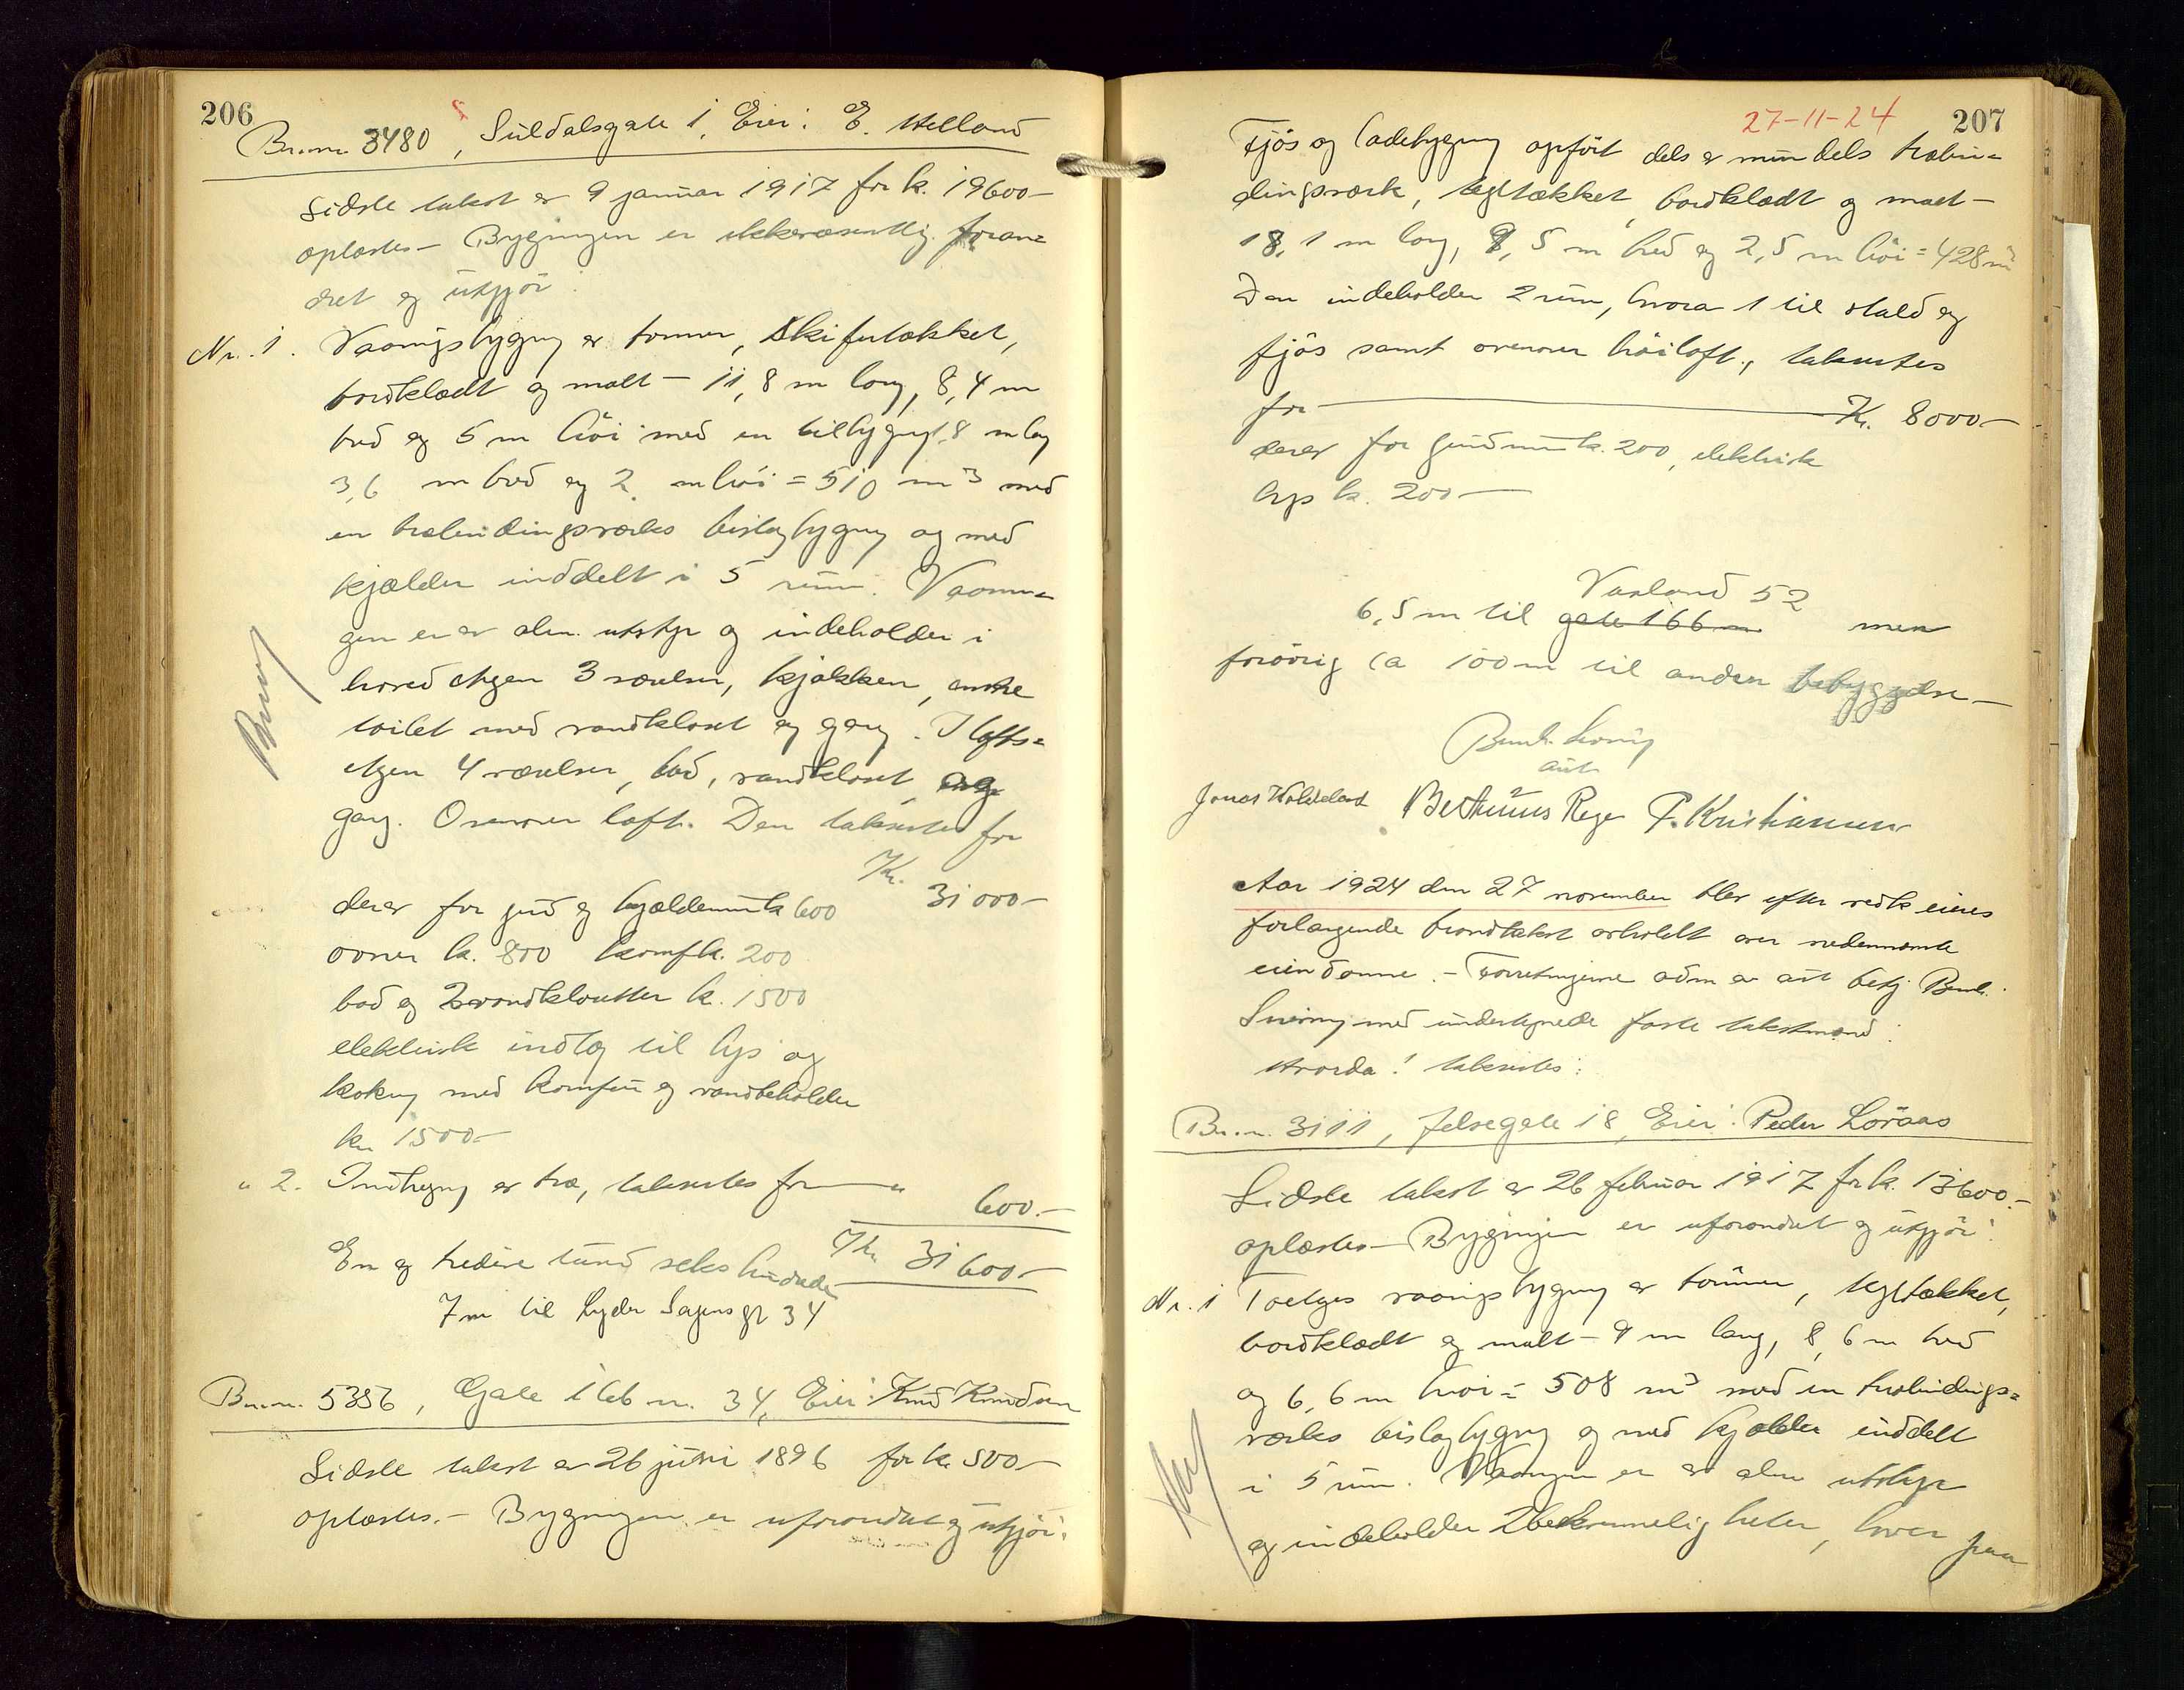 206
Br.nr. 3480, Suldalsgate 1, Eier: E. Helland
Sidste takst er 9 januar 1917 for k. 19600-
oplæstes – Bygningen er ikke væsentlig foran=
dret og utgjör:
Nr. 1. Vaaningsbygning av tømmer, skifertækket,
bordklædt og malt – 11,8 m lang, 8,4 m
bred og 5 m höi med en tilbygning 1,8 m lang
3,6 m bred og 2 m höi = 510 m3 med
en træbindingsværks bislagbygning og med
kjælder inddelt i 5 rum. Vaanin=
gen er av alm. utstyr og indeholder i
hovedetagen 3 værelser, kjøkken,
toilet med vandkloset og gang. I lofts=
etagen 4 værelser, bad, vandkloset og
gang. Ovenover loft. Den takseres for
Kr. 31000-
derav for grund og kjældermur k. 600
ovner k. 800 komf k. 200
bad og 2 vandklosetter k. 1500
elektrisk indlæg til lys og
kokning med komfur og vandbeholder
kr 1500-
" 2. Indhegning av træ, takseres for " 600.-
Kr. 31600.-
En og tredive tusind seks hundrede
7 m til Lyder Sagens gt 34
Br.nr. 5356, Gate 166 nr. 34, Eier: Knud Knudsen
Sidste takst er 26 juni 1896 for k. 500-
oplæstes. – Bygningen er uforandret og utgjör:
27-11-24 207
Fjös og ladebygning opfört dels av mur dels træbin=
dingsværk, tegltækket, bordklædt og malt –
18,1 m lang, 9,5 m bred og 2,5 m höi = 428 m3
Den indeholder 2 rum, hvorav 1 til stald og
fjös samt ovenover höiloft, takseres
for Kr. 8000-
derav for grundmur k. 200, elektrisk
lys k. 200-
Varland 52
6,5 m til gate 166 men
forövrig ca 100 m til anden bebyggelse –
Bernh. Lorvig
aut
Jonas Berthinius Rege P. Kristiansen
Aar 1924 den 27 november blev efter vedk eieres
forlangende brandtakst avholdt over nedennævnte
eiendomme. – Forretningerne adm av aut betj Bernh.
med undertegnede faste takstmænd:
Hvorda! takseres:
Br.nr. 3111, Jelsegate 18, Eier: Peder Löraas
Sidste takst er 26 februar 1917 for k. 13600.-
oplæstes – Bygningen er uforandret og utgjör:
Nr. 1 Toetages vaaningsbygning av tömmer, tegltækket,
bordklædt og malt – 9 m lang, 8,6 m bred
og 6,6 m höi = 508 m3 med en træbindings=
værks bislagbygning og med kjælder inddelt
i 5 rum. Vaaningen er av alm utstyr
og indeholder 2 bekvemmeligheter, hver paa